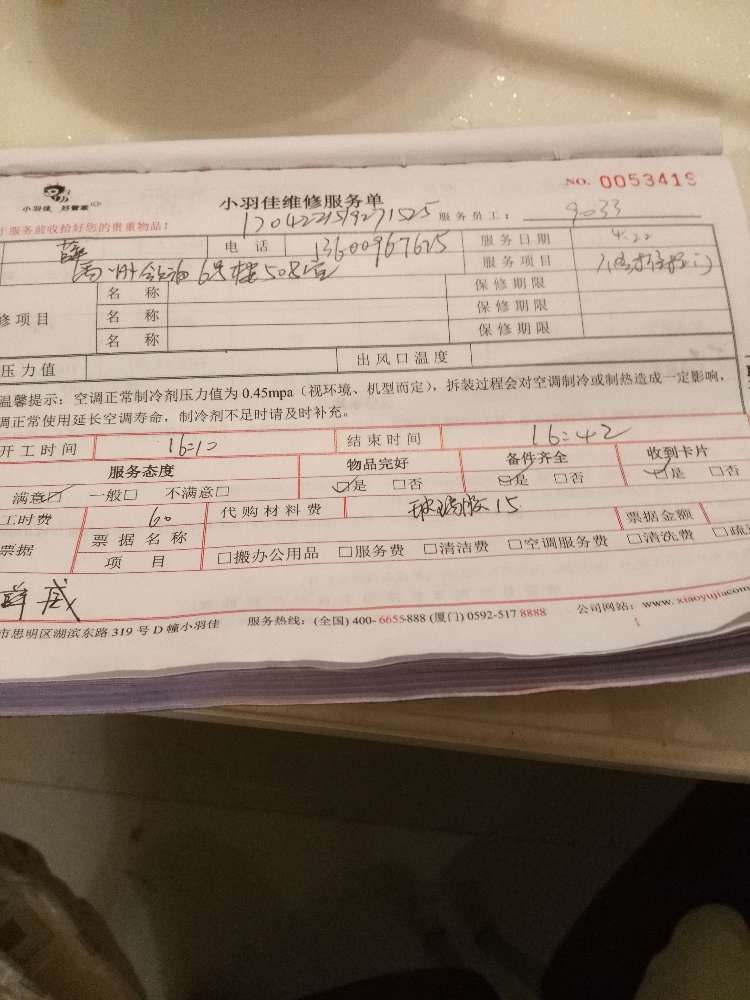 小羽佳 好管家
小羽佳维修服务单
NO. 0053419
于服务前收拾好您的贵重物品！
1704221519271525
服务员工： 9033
电 话 13600967625 服务日期 4.22
6号楼508室 服务项目
名 称 保修期限
修项目 名 称 保修期限
名 称 保修期限
压力值 出风口温度
温馨提示：空调正常制冷剂压力值为 0.45mpa（视环境、机型而定），拆装过程会对空调制冷或制热造成一定影响，
调正常使用延长空调寿命，制冷剂不足时请及时补充。
开工时间 16:10 结束时间 16:42
服务态度 物品完好 备件齐全 收到卡片
满意□ 一般□ 不满意□ □是 □否 □是 □否 □是 □否
工时费 60 代购材料费 玻璃胶 15 票据金额
票据 票据名称
项 目 □搬办公用品 □服务费 □清洁费 □空调服务费 □清洗费 □疏
市思明区湖滨东路 319 号 D 幢小羽佳 服务热线：(全国) 400- 6655-888 (厦门) 0592-517 8888 公司网站：www. xiaoyujiacom